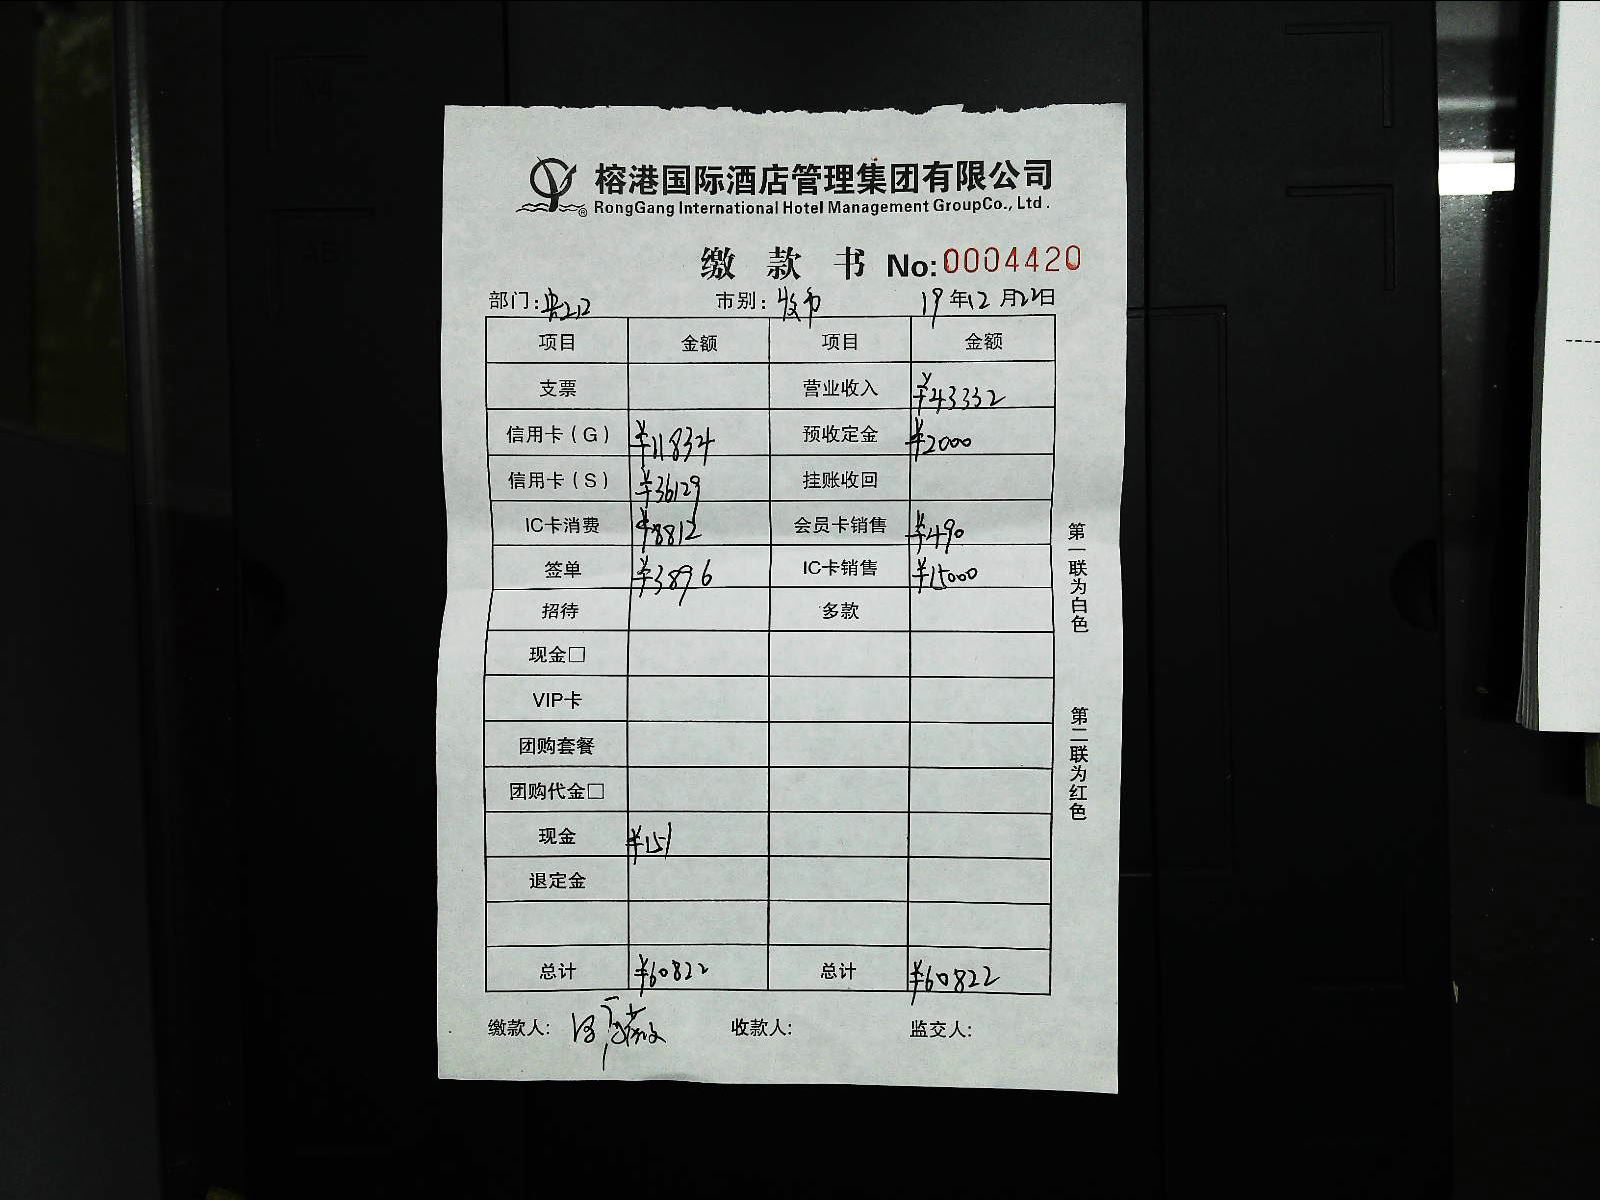 榕港国际酒店管理集团有限公司
RongGang International Hotel Management GroupCo., Ltd.
缴 款 书 No:0004420
部门: 市别: 夜市 19年12月22日
项目 金额 项目 金额
支票 营业收入 ¥43332
信用卡(G) ¥11834 预收定金 ¥2000
信用卡(S) ¥36129 挂账收回
IC卡消费 ¥8812 会员卡销售 ¥490
签单 ¥3896 IC卡销售 ¥15000
招待 多款
现金□
VIP卡
团购套餐
团购代金□
现金 ¥151
退定金
总计 ¥60822 总计 ¥60822
缴款人: 收款人: 监交人:
第一联为白色
第二联为红色